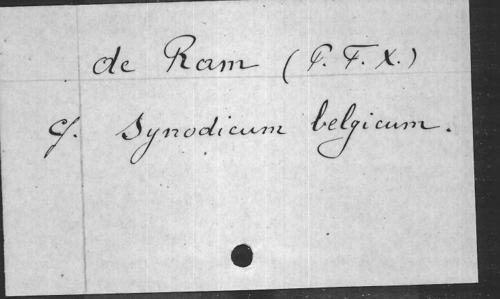 de Ram (P. F. X.)
Cf. Synodicum belgicum.